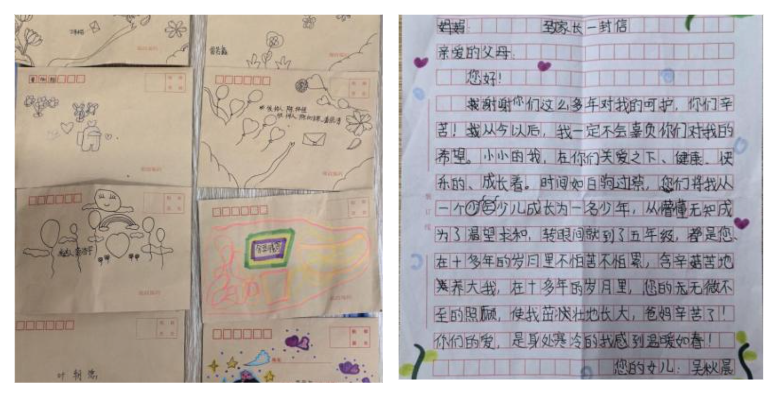 致家长一封信
亲爱的父母:
您好!
我谢谢你们这么多年对我的呵护,你们辛
苦!我从今以后,我一定不会辜负你们对我的
希望。小小的我,在你们关爱之下、健康、快
乐的、成长着。时间如白驹过隙,您们将我从
一个少儿成长为一名少年,从懵懂无知成
为了渴望求知,转眼间就到了五年级,都是您
在十多年的岁月里不怕苦不怕累,含辛茹苦地
养大我,在十多年的岁月里,您的无无微不
至的照顾,使我茁壮地长大,爸妈辛苦了!
你们的爱,是身处寒冷的我感到温暖如春!
您的女儿:吴秋晨